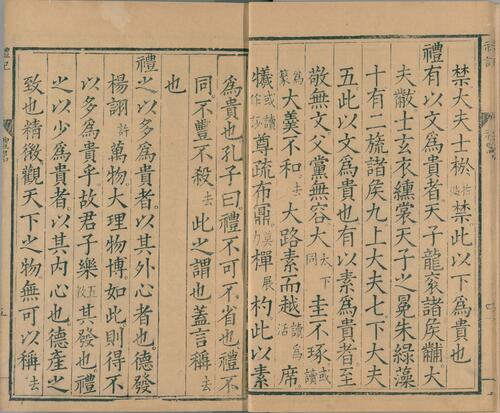 禁大夫士棜禁此以下為貴也
禮有以文為貴者天子龍衮諸矦黼大
夫黻士玄衣纁裳天子之冕朱綠藻
十有二旒諸矦九上大夫七下大夫
五此以文為貴也有以素為貴者至
敬無文父黨無容大圭不琢
大羹不和去大路素而越席
犧尊疏布鼏樿杓此以素
為貴也孔子曰禮不可不省也禮不
同不豐不殺去此之謂也蓋言稱去
也
禮之以多為貴者以其外心者也德發
楊詡許萬物大理物博如此則得不
以多為貴乎故君子樂其發也禮
之以少為貴者以其內心也德產之
致也精微觀天下之物無可以稱去
禮記